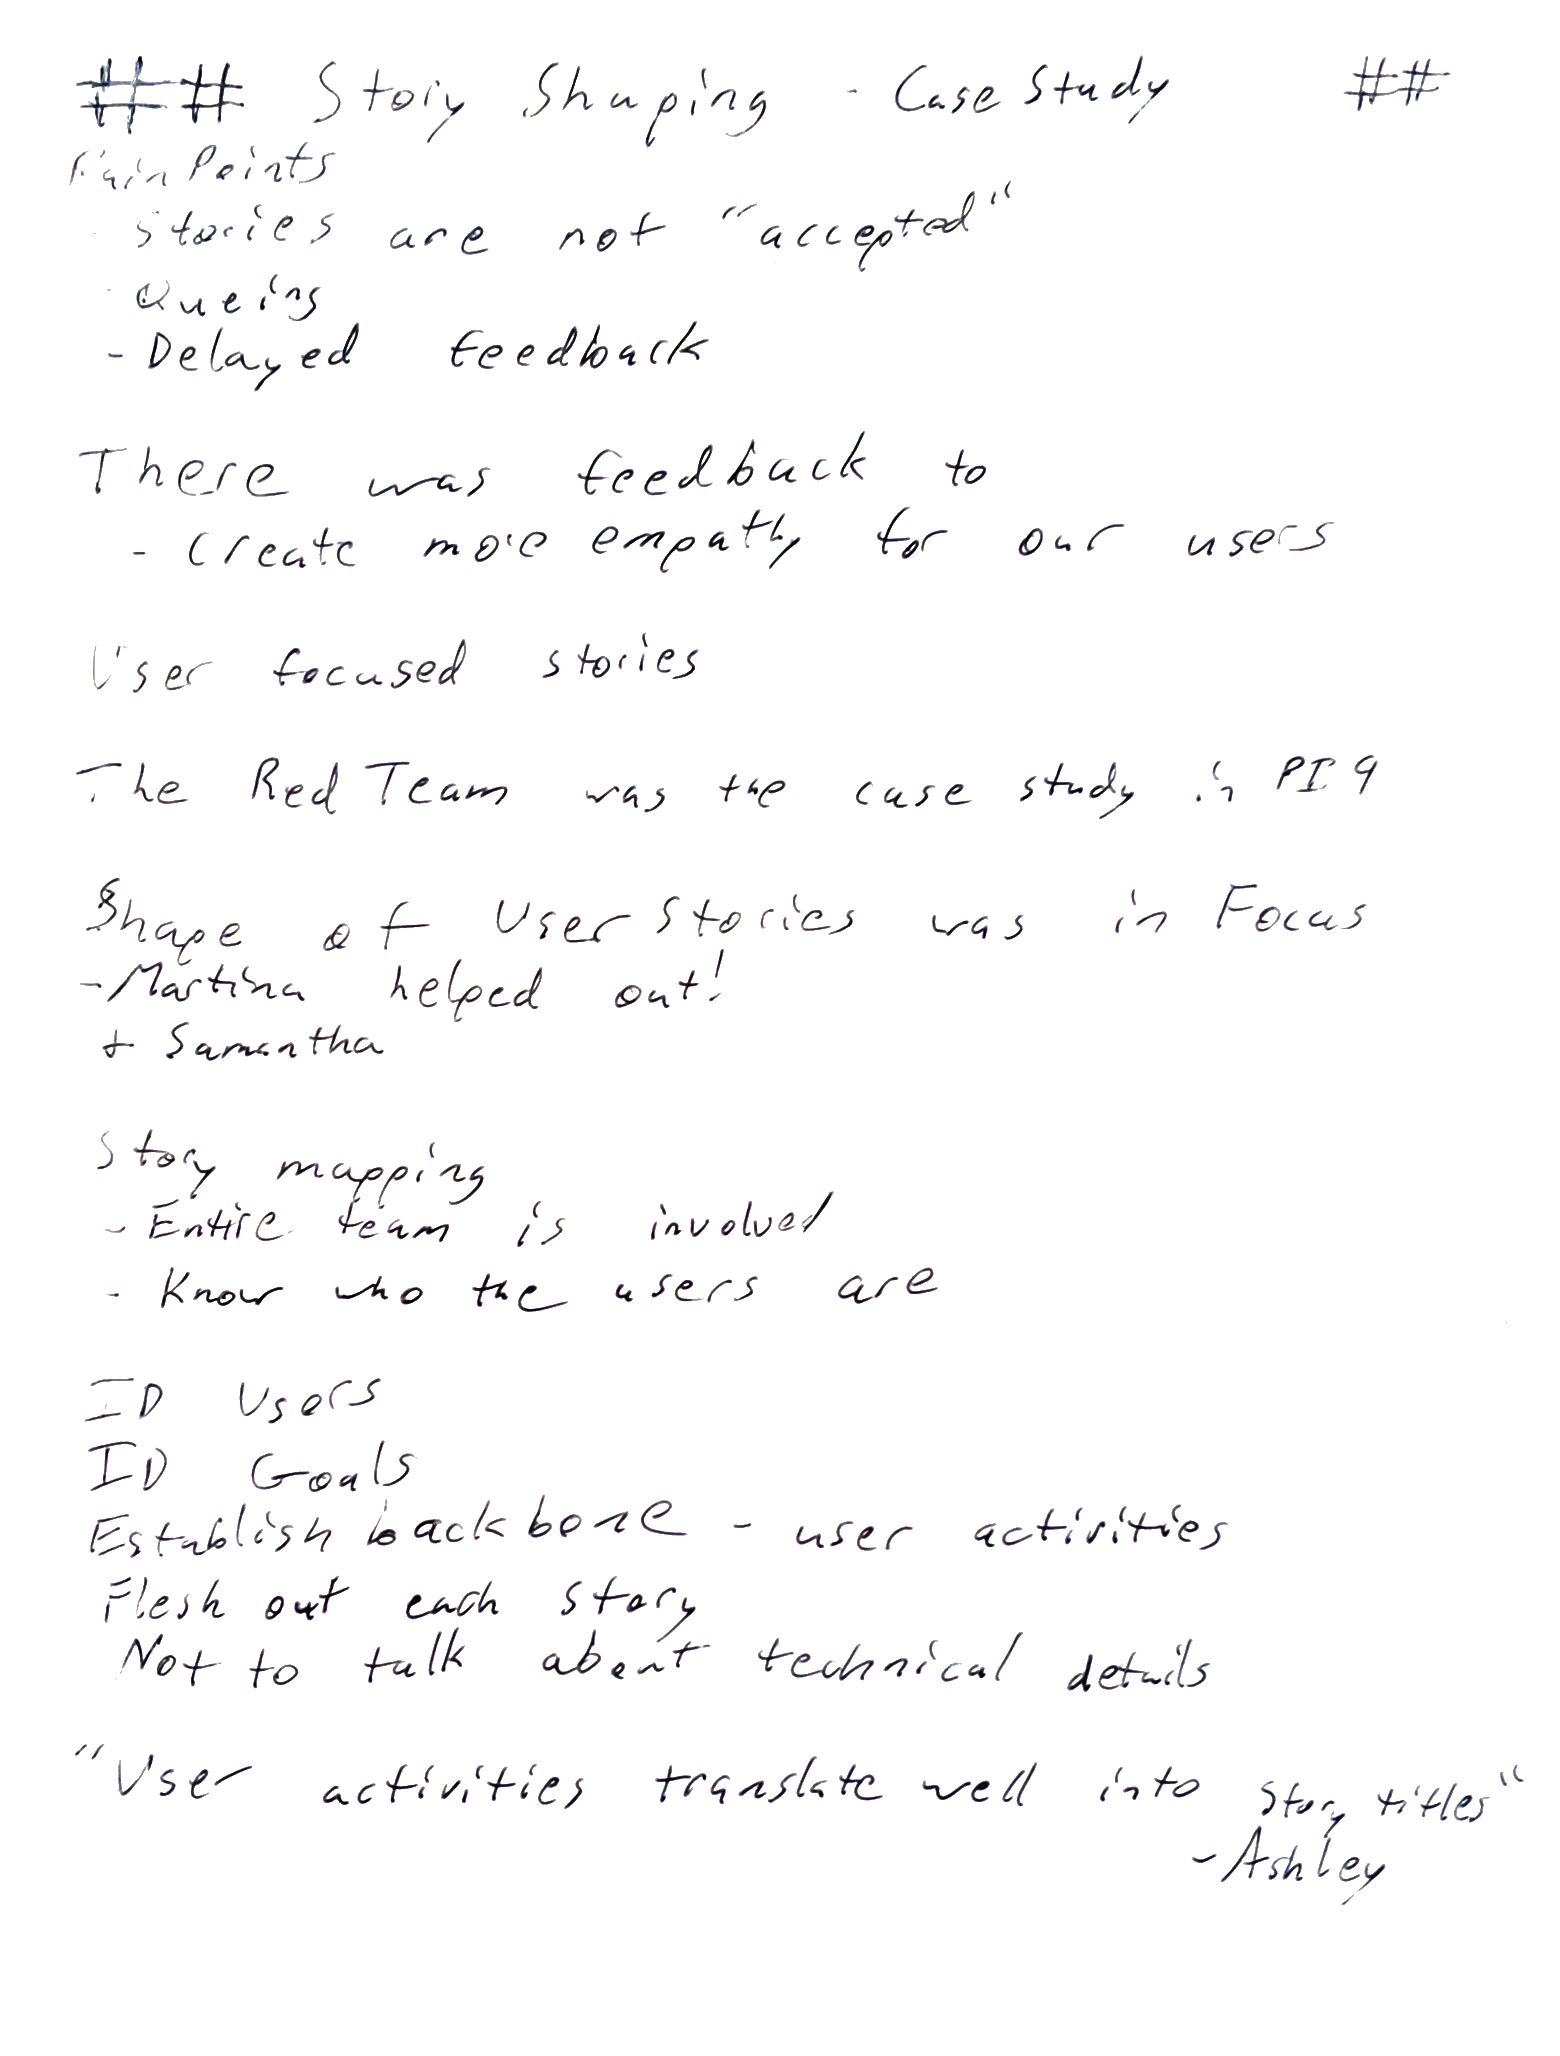 ## Story Shaping - Case Study ##
Pain Points
- Stories are not "accepted"
- Queing
- Delayed feedback
There was feedback to
- Create more empathy for our users
User focused stories
The Red Team was the case study in PI 9
Shape of User Stories was in Focus
- Martina helped out!
+ Samantha
Story mapping
- Entire team is involved
- Know who the users are
ID Users
ID Goals
Establish backbone - user activities
Flesh out each story
Not to talk about technical details
"User activities translate well into story titles"
- Ashley